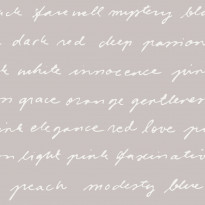 ack farewell mystery bl
dark red deep passion
k white innocence pin
n grace orange gentlenes
ink elegance red love p
n light pink fascinati
peach modesty blue